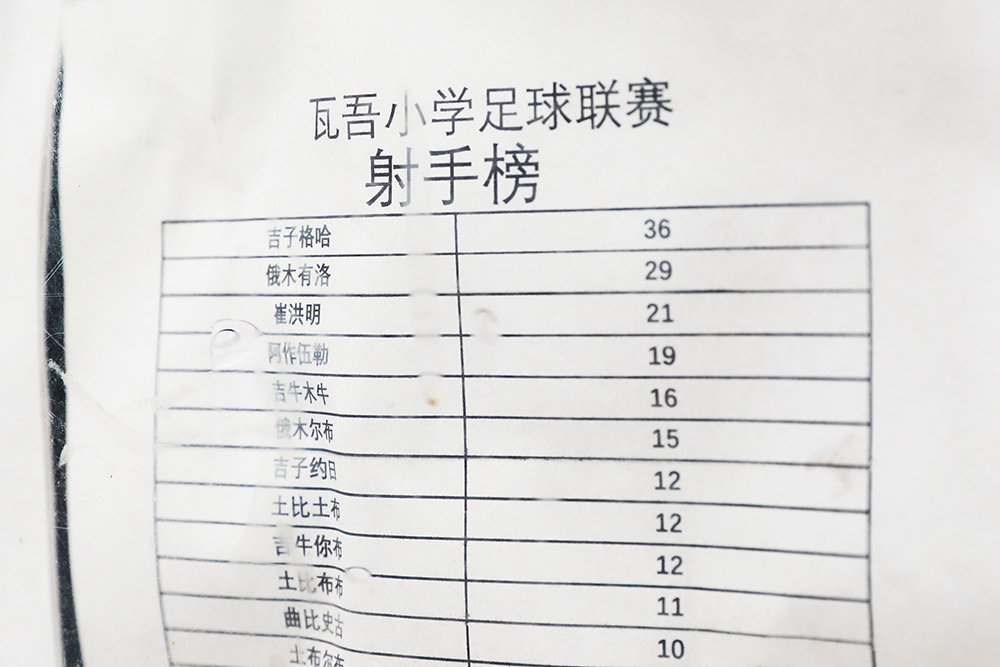 瓦吾小学足球联赛
射手榜
吉子格哈 36
俄木有洛 29
崔洪明 21
阿作伍勒 19
吉牛木牛 16
俄木尔布 15
吉子约日 12
土比土布 12
吉牛你布 12
土比布布 11
曲比史古 10
土布尔布